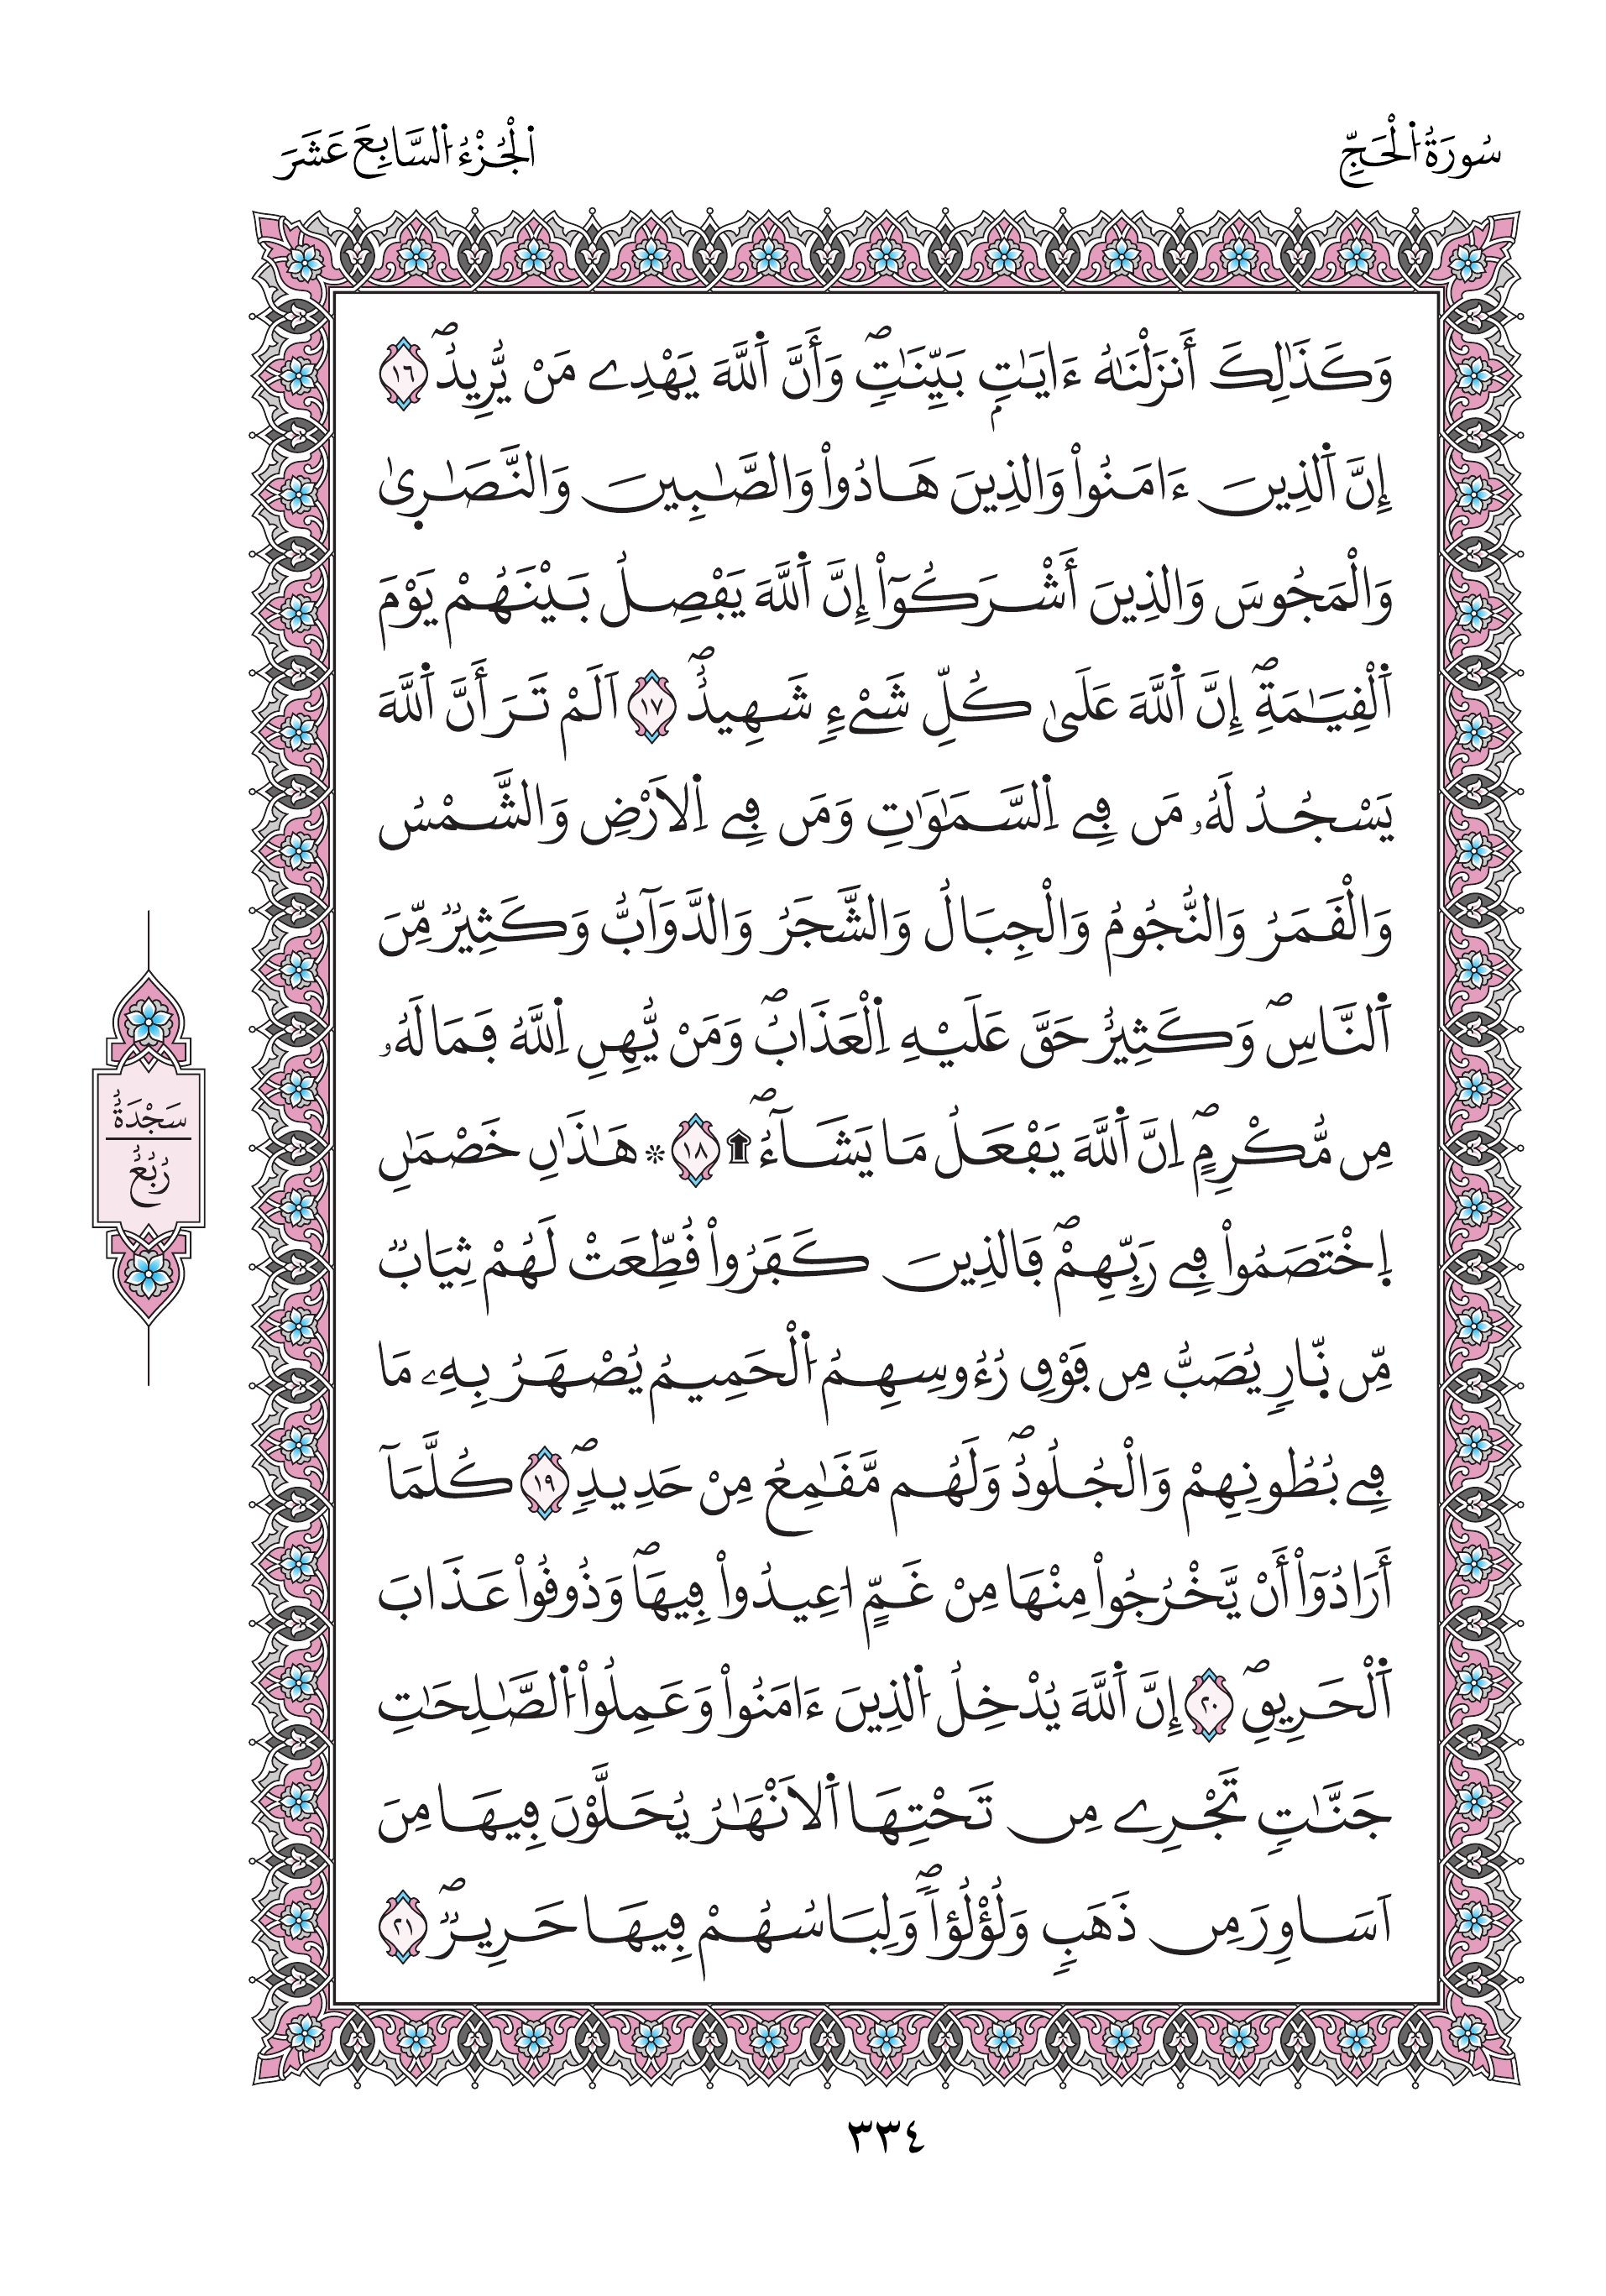 سُورَةُ اُ۬لْحَجِّ
اُ۬لْجُزْءُ اُ۬لسَّابِعَ عَشَرَ
وَكَذَٰلِكَ أَنزَلْنَٰهُ ءَايَٰتِۢ بَيِّنَٰتٖۖ وَأَنَّ اَ۬للَّهَ يَهْدِے مَنْ يُّرِيدُۖ ١٦
إِنَّ اَ۬لذِينَ ءَامَنُواْ وَالذِينَ هَادُواْ وَالصَّٰبِينَ وَالنَّصَٰر۪يٰ
وَالْمَجُوسَ وَالذِينَ أَشْرَكُوٓاْ إِنَّ اَ۬للَّهَ يَفْصِلُ بَيْنَهُمْ يَوْمَ
اَ۬لْقِيَٰمَةِۖ إِنَّ اَ۬للَّهَ عَلَىٰ كُلِّ شَےْءٖ شَهِيدٌۖ ١٧ اَلَمْ تَرَ أَنَّ اَ۬للَّهَ
يَسْجُدُ لَهُۥ مَن فِے اِ۬لسَّمَٰوَٰتِ وَمَن فِے اِ۬لَارْضِ وَالشَّمْسُ
وَالْقَمَرُ وَالنُّجُومُ وَالْجِبَالُ وَالشَّجَرُ وَالدَّوَآبُّ وَكَثِيرٞ مِّنَ
اَ۬لنَّاسِۖ وَكَثِيرٌ حَقَّ عَلَيْهِ اِ۬لْعَذَابُۖ وَمَنْ يُّهِنِ اِ۬للَّهُ فَمَا لَهُۥ
مِن مُّكْرِمٍۖ اِنَّ اَ۬للَّهَ يَفْعَلُ مَا يَشَآءُۖ ۩ ١٨ * هَٰذَٰنِ خَصْمَٰنِ
اِ۪خْتَصَمُواْ فِے رَبِّهِمْۖ فَالذِينَ كَفَرُواْ قُطِّعَتْ لَهُمْ ثِيَابٞ
مِّن نّ۪ارٖ يُصَبُّ مِن فَوْقِ رُءُوسِهِمُ اُ۬لْحَمِيمُ يُصْهَرُ بِهِۦ مَا
فِے بُطُونِهِمْ وَالْجُلُودُۖ وَلَهُم مَّقَٰمِعُ مِنْ حَدِيدٖۖ ١٩ كُلَّمَآ
أَرَادُوٓاْ أَنْ يَّخْرُجُواْ مِنْهَا مِنْ غَمٍّ اُعِيدُواْ فِيهَاۖ وَذُوقُواْ عَذَابَ
اَ۬لْحَرِيقِۖ ٢٠ إِنَّ اَ۬للَّهَ يُدْخِلُ اُ۬لذِينَ ءَامَنُواْ وَعَمِلُواْ اُ۬لصَّٰلِحَٰتِ
جَنَّٰتٖ تَجْرِے مِن تَحْتِهَا اَ۬لَانْهَٰرُ يُحَلَّوْنَ فِيهَا مِنَ
اَسَاوِرَ مِن ذَهَبٖ وَلُؤْلُؤاٗۖ وَلِبَاسُهُمْ فِيهَا حَرِيرٞۖ ٢١
سَجْدَةٌ
رُبُعٌ
٣٣٤